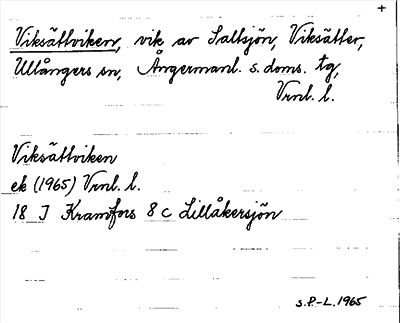 +
Viksättviken, vik av Saltsjön, Viksätter,
Ullångers sn, Ångermanl. s. doms. tg,
Vrnl. l.
Viksättviken
ek (1965) Vrnl. l.
18 J Kramfors 8 c Lillåkersjön
S.P-L. 1965